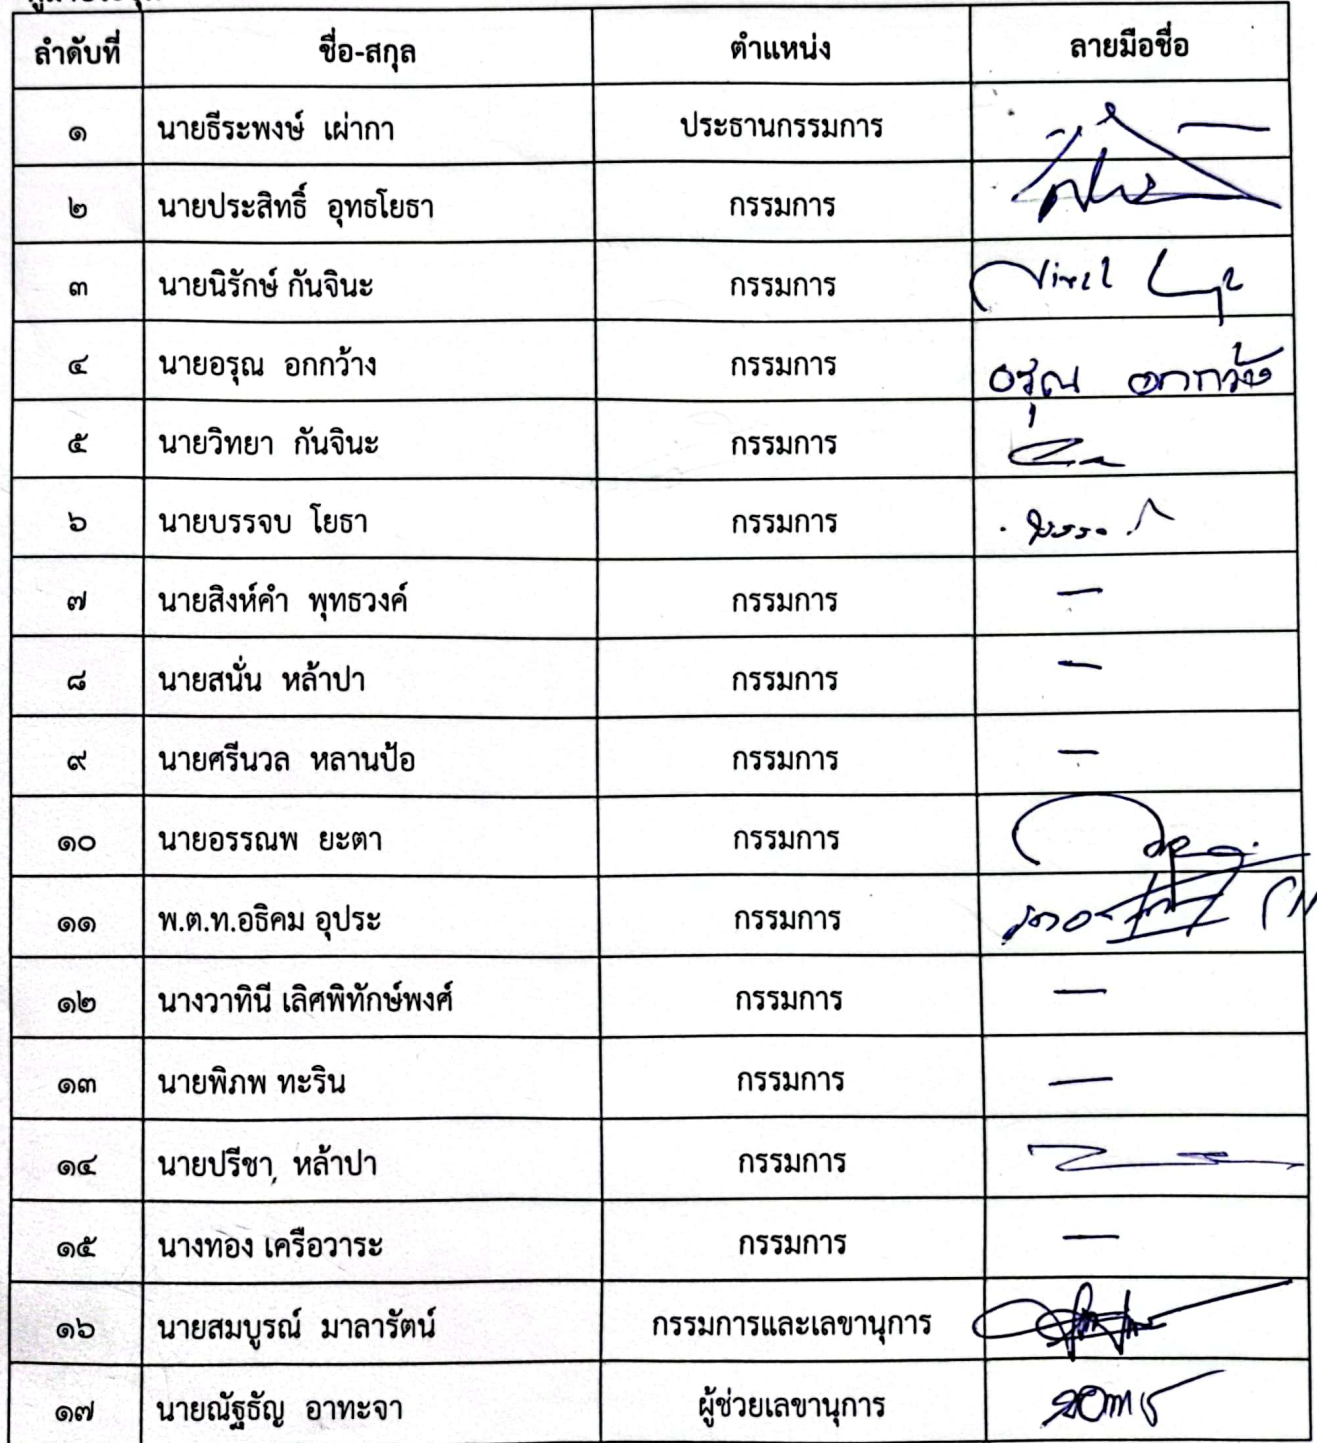 ลำดับที่ ชื่อ-สกุล ตำแหน่ง ลายมือชื่อ
๑ นายธีระพงษ์ เผ่ากา ประธานกรรมการ
๒ นายประสิทธิ์ อุทธโยธา กรรมการ
๓ นายนิรักษ์ กันจินะ กรรมการ
๔ นายอรุณ อกกว้าง กรรมการ อรุณ อกกว้าง
๕ นายวิทยา กันจินะ กรรมการ
๖ นายบรรจบ โยธา กรรมการ
๗ นายสิงห์คำ พุทธวงค์ กรรมการ –
๘ นายสนั่น หล้าปา กรรมการ –
๙ นายศรีนวล หลานป้อ กรรมการ –
๑๐ นายอรรณพ ยะตา กรรมการ
๑๑ พ.ต.ท.อธิคม อุประ กรรมการ
๑๒ นางวาทินี เลิศพิทักษ์พงศ์ กรรมการ –
๑๓ นายพิภพ ทะริน กรรมการ –
๑๔ นายปรีชา หล้าปา กรรมการ
๑๕ นางทอง เครือวาระ กรรมการ –
๑๖ นายสมบูรณ์ มาลารัตน์ กรรมการและเลขานุการ
๑๗ นายณัฐธัญ อาทะจา ผู้ช่วยเลขานุการ